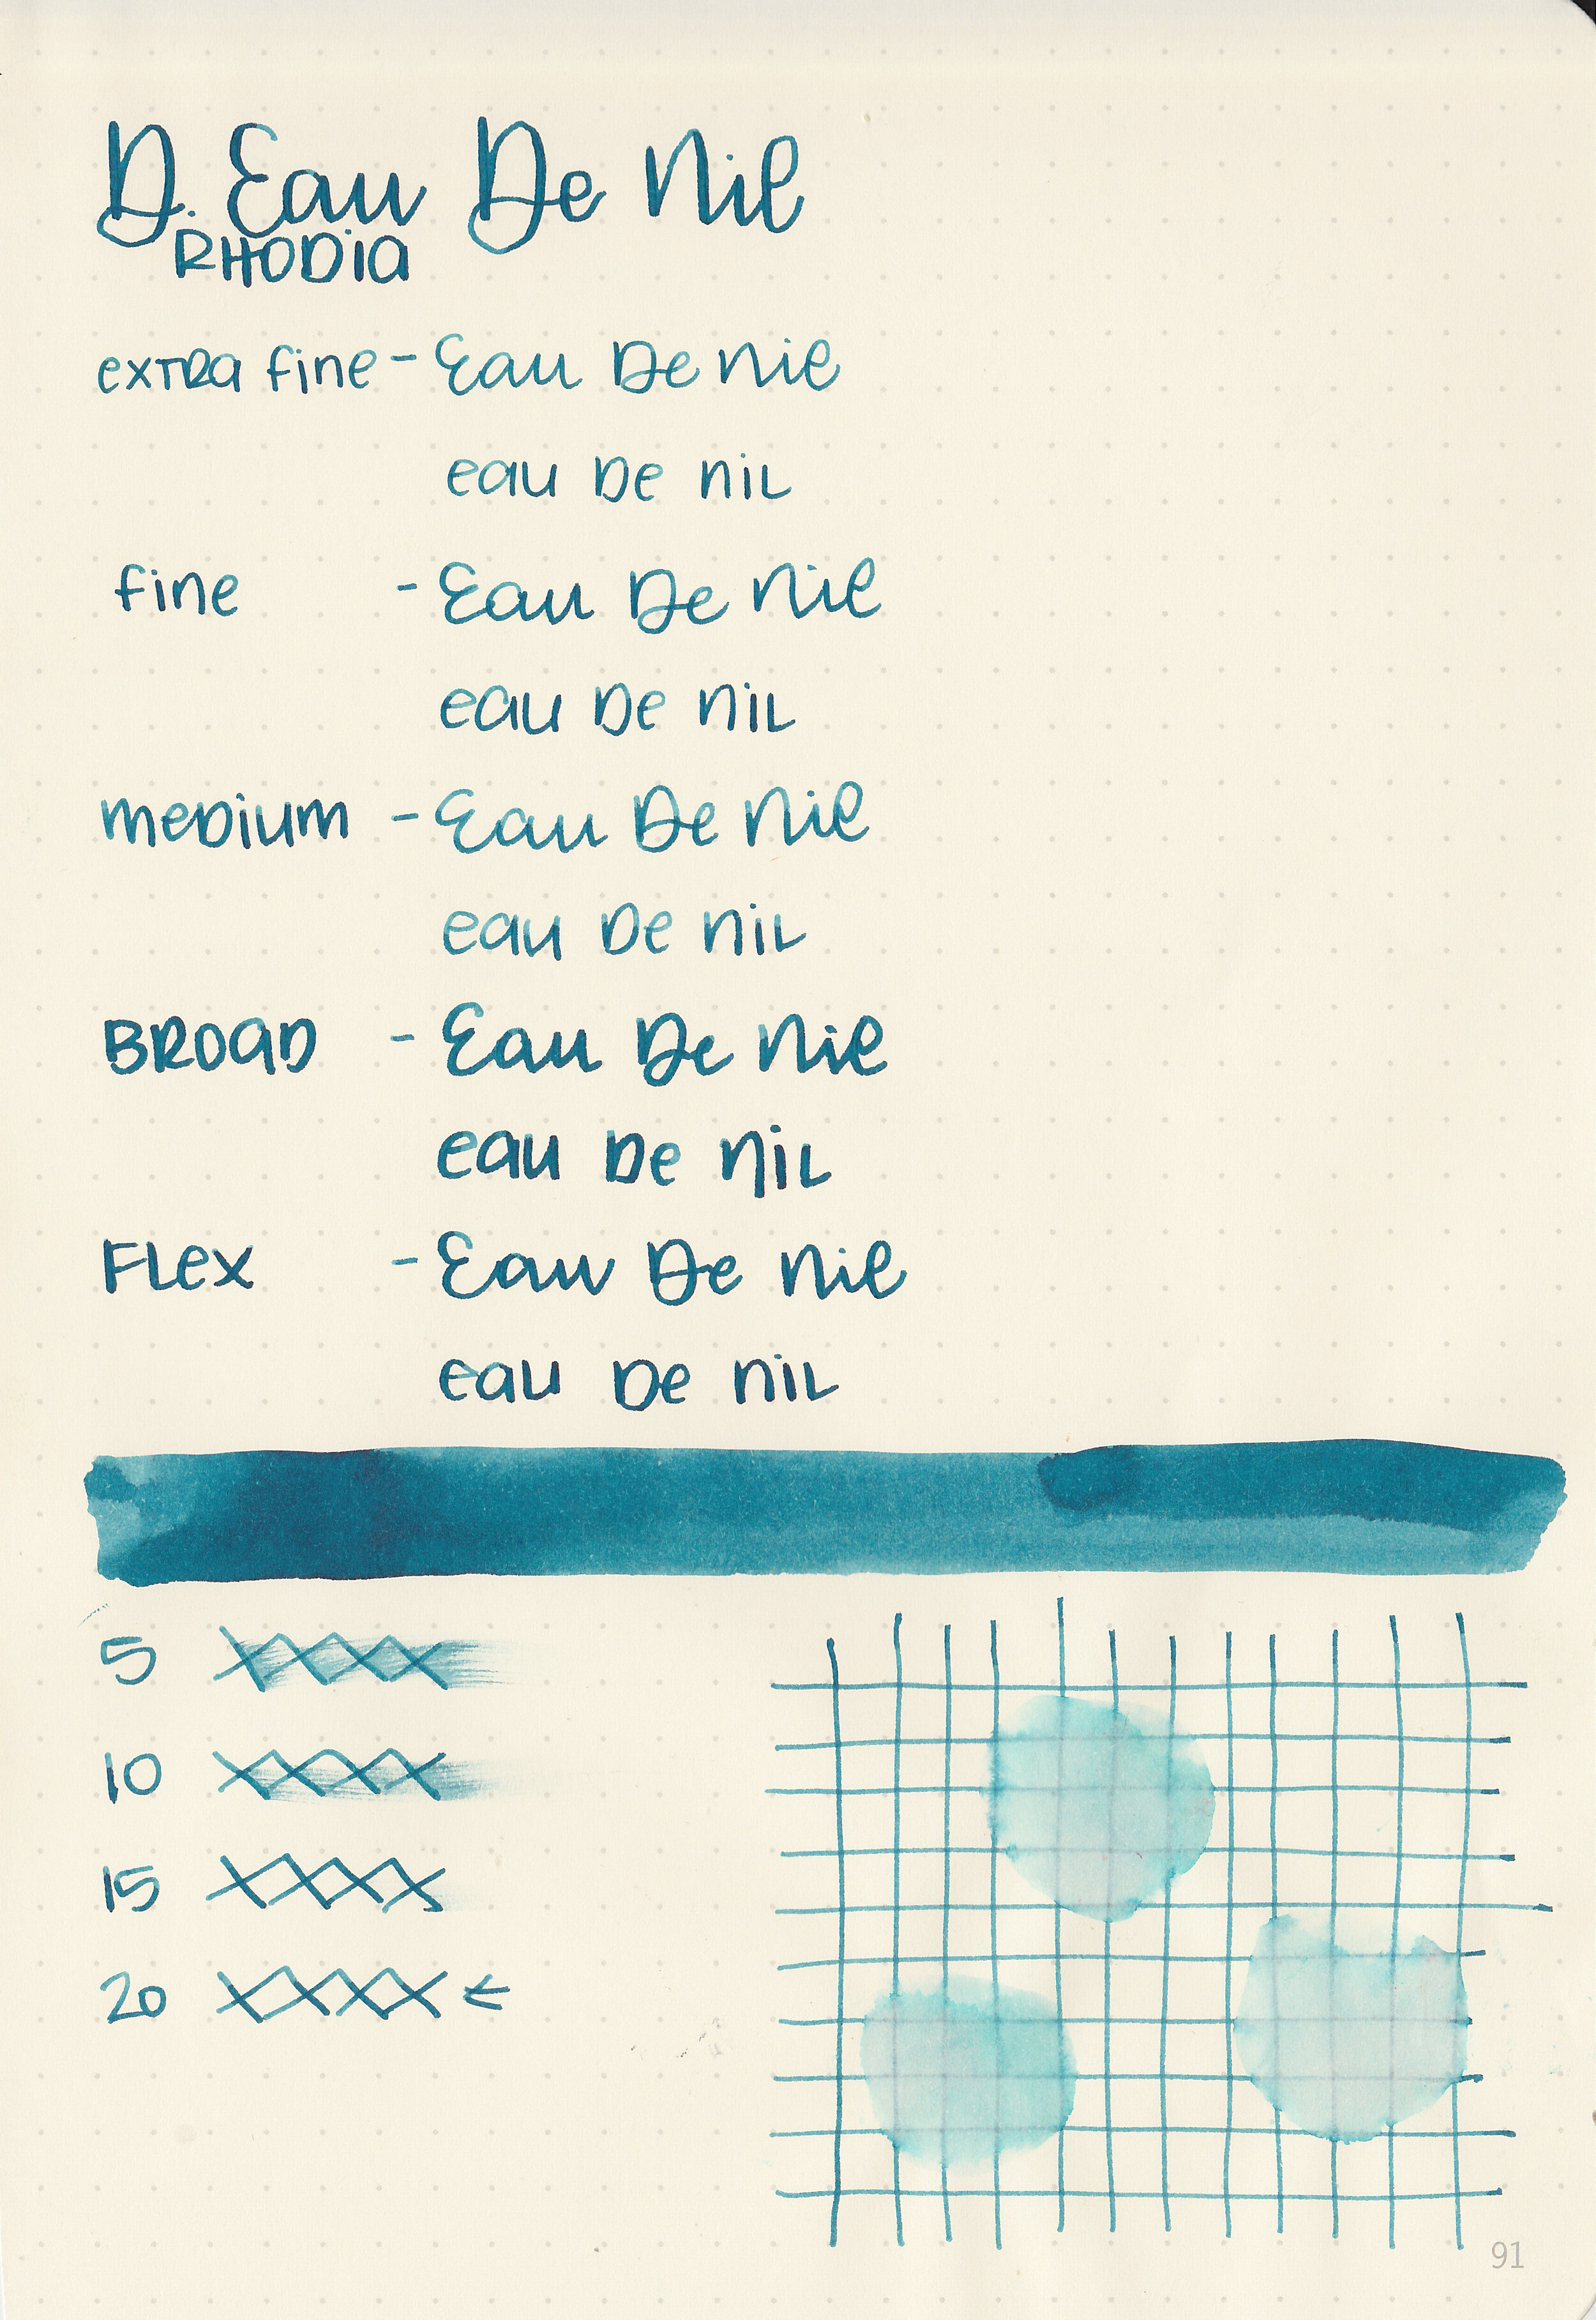 D. Eau De Nil
RHODIA
extra fine - Eau De Nil
eau De nil
fine - Eau De Nil
eau De nil
meDium - Eau De Nil
eau De nil
BROAD - Eau De Nil
eau De nil
FLex - Eau De Nil
eau De nil
5 XXXX
10 XXXX
15 XXXX
20 XXXX ←
91